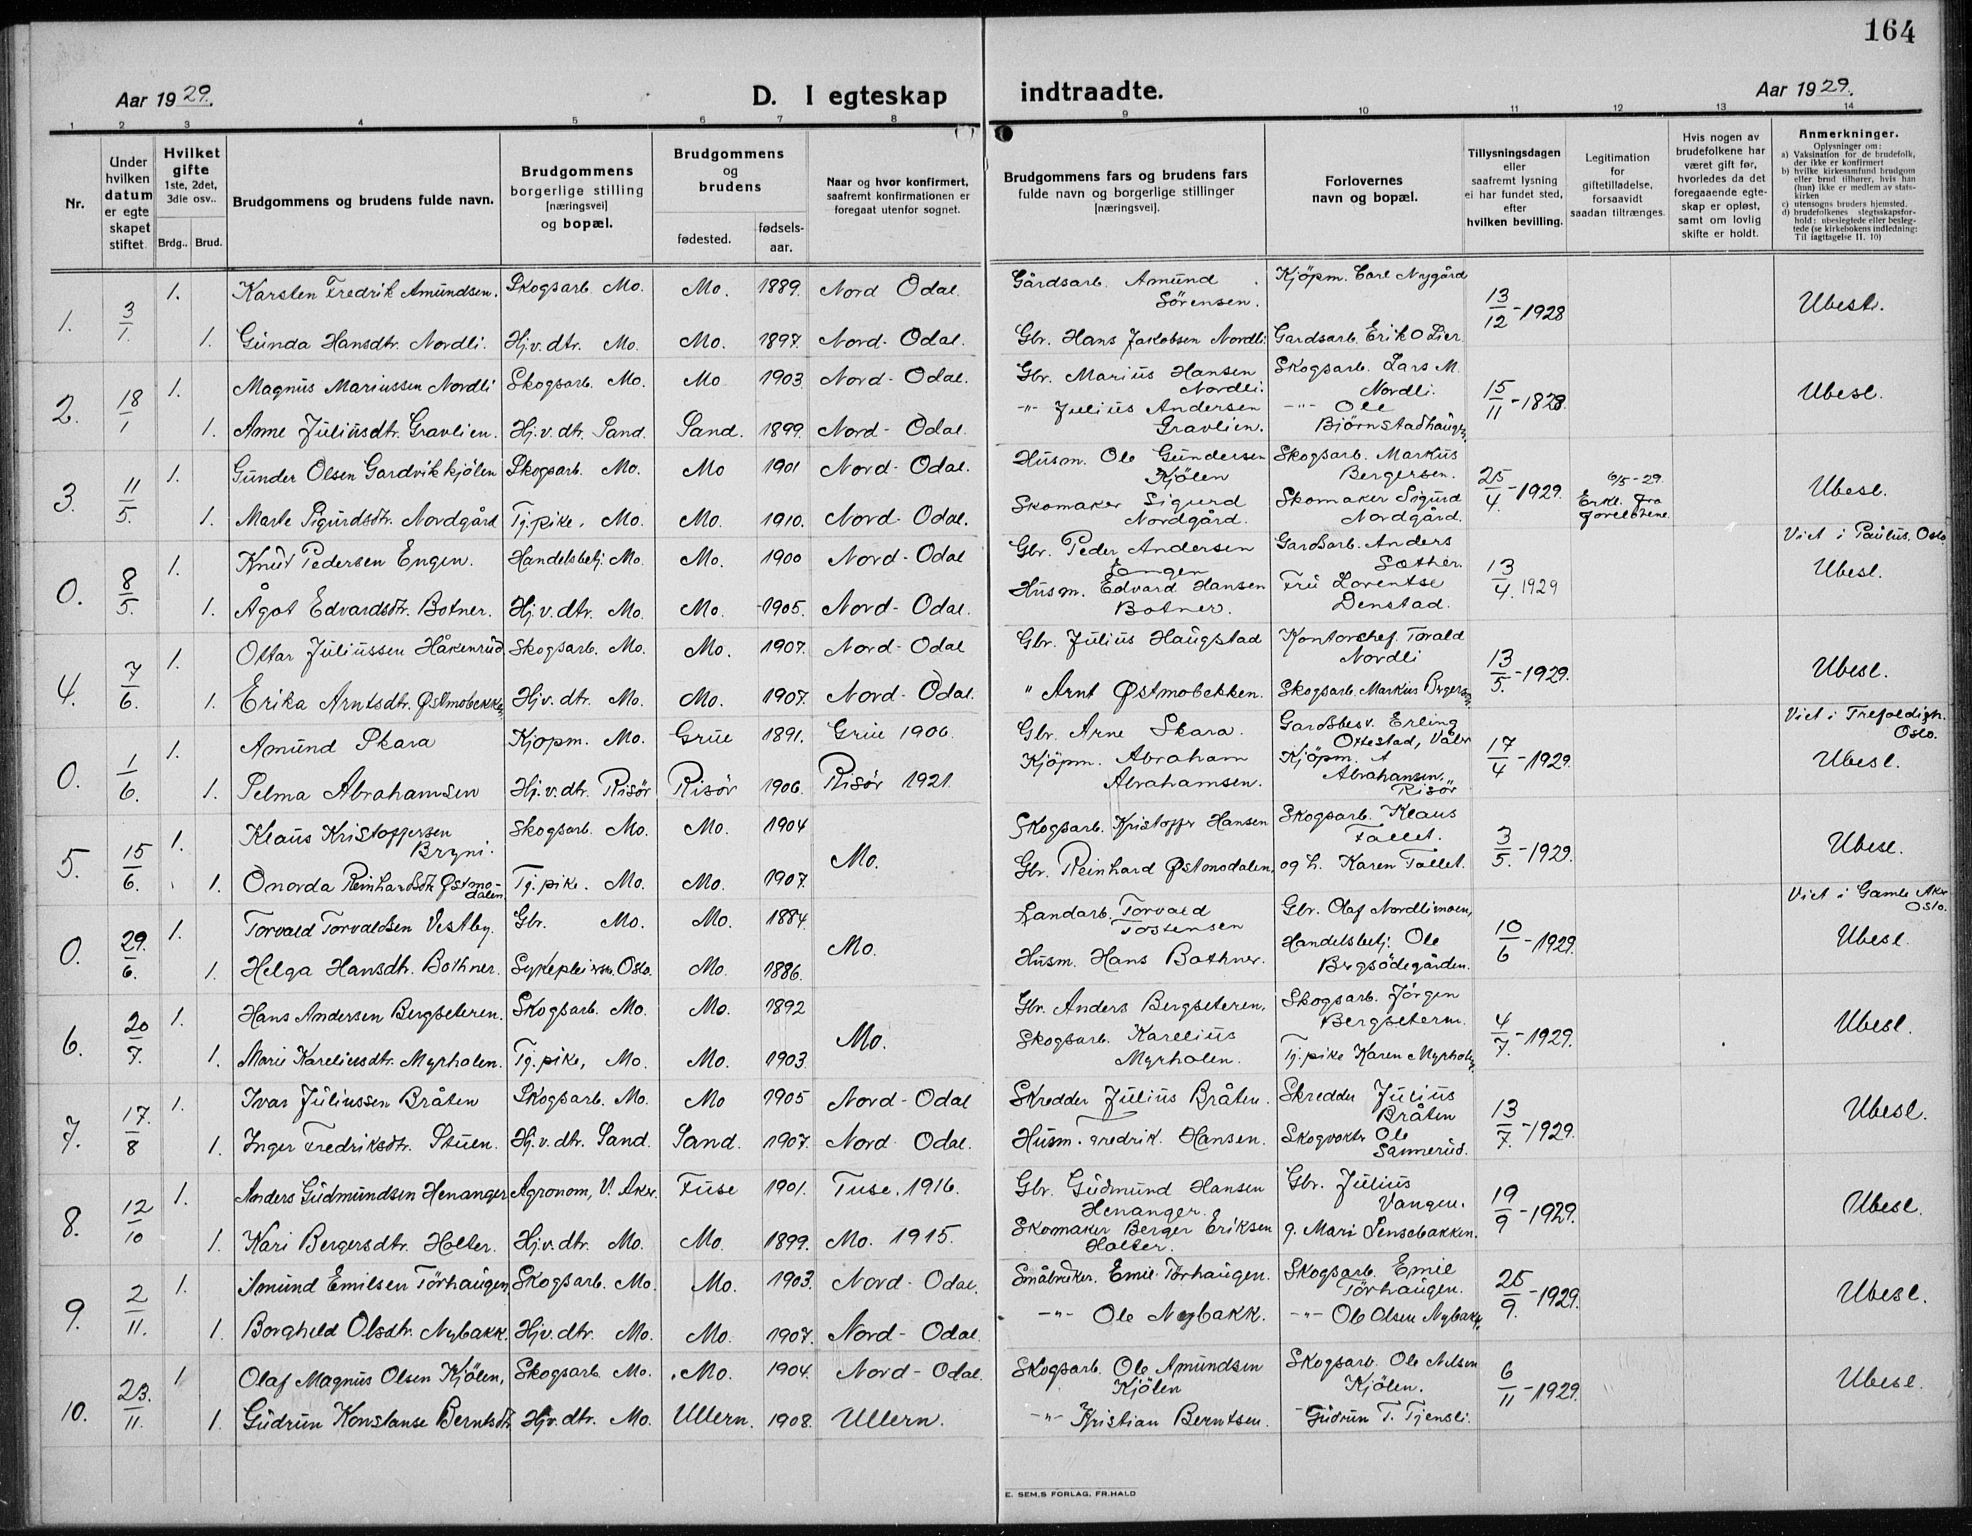 164
Aar 1929.
D. I egteskap indtraadte.
Aar 1929.
1 2 3 4 5 6 7 8 9 10 11 12 13 14
Nr.
Under hvilken datum er egteskapet stiftet.
Hvilket gifte 1ste, 2det, 3die osv..
Brdg.. Brud.
Brudgommens og brudens fulde navn.
Brudgommens borgerlige stilling [næringsvei] og bopæl.
Brudgommens og brudens
fødested.
fødsels-aar.
Naar og hvor konfirmert, saafremt konfirmationen er foregaat utenfor sognet.
Brudgommens fars og brudens fars fulde navn og borgerlige stillinger [næringsvei].
Forlovernes navn og bopæl.
Tillysningsdagen eller saafremt lysning ei har fundet sted, efter hvilken bevilling.
Legitimation for giftetilladelse, forsaavidt saadan tiltrænges.
Hvis nogen av brudefolkene har været gift før, hvorledes da det foregaaende egteskap er opløst, samt om lovlig skifte er holdt.
Anmerkninger.
Oplysninger om:
a) Vaksination for de brudefolk, der ikke er konfirmert
b) hvilke kirkesamfund brudgom eller brud tilhører, hvis han (hun) ikke er medlem av statskirken
c) utensogns bruders hjemsted.
d) brudefolkenes slegtsskapsforhold: ubeslegtede eller beslegtede (se kirkebokens indledning: Til iagttagelse II. 10)
1. 3/1. 1. Karsten Fredrik Amundsen. Skogsarb. Mo. Mo. 1889. Nord Odal. Gårdsarb. Amund Sörensen. Kjöpm. Carl Nygård 13/12 - 1928 Ubesl.
1. Gunda Hansdtr. Nordli. Hj.v.dtr. Mo. Mo. 1897. Nord-Odal. Gbr. Hans Jakobsen Nordli. Gardsarb. Erik O Lier
2. 18/1 1. Magnus Mariussen Nordli Skogsarb. Mo. Mo 1903 Nord-Odal. Gbr. Marius Hansen Nordli. Skogsarb. Lars M. Nordli. 15/11 - 1828. Ubesl.
1. Anne Juliusdtr. Gravlien. Hj.v.dtr. Sand. Sand. 1899. Nord-Odal. -"- Julius Andersen Gravlien. -"- Ole Björnstadhaugen.
3. 11/5. 1. Gunder Olsen Gardvik kjölen Skogsarb. Mo. Mo 1901 Nord-Odal. Husm. Ole Gundersen Kjölen Skogsarb. Markus Bergersen. 25/4 - 1929. 6/5 - 29. Erkl. fra foreldrene. Ubesl.
1. Marle Sigurdsdtr. Nordgård Tj.pike. Mo. Mo. 1910. Nord-Odal. Skomaker Sigurd Nordgård. Skomaker Sigurd Nordgård.
Viet i Paulus. Oslo
0. 8/5. 1. Knud Pedersen Engen. Handelsbetj. Mo. Mo. 1900 Nord-Odal Gbr. Peder Andersen Engen Gardsarb. Anders Sæther. 13/4. 1929 Ubesl.
1. Ågot Edvardsdtr. Botner. Hj.v.dtr. Mo. Mo. 1905. Nord-Odal. Husm. Edvard Hansen Botner. Fru Lorentse Denstad.
4. 7/6. 1. Ottar Juliussen Håkenrud Skogsarb. Mo. Mo. 1907. Nord-Odal Gbr. Julius Haugstad Kontorchef. Torald Nordli 13/5. - 1929. Ubesl.
1. Erika Arntsdtr. Østmobekken Hj.v.dtr. Mo. Mo. 1907. Nord-Odal. " Arnt Østmobekken. Skogsarb. Markus Bergersen
Viet i Trefoldigh. Oslo.
0. 1/6. 1. Amund Skara Kjopm. Mo. Grue 1891. Grue 1906. Gbr. Arne Skara. Gardsbesv. Erling Ottestad, Våler 17/4 - 1929. Ubesl.
1. Selma Abrahamsen Hj.v.dtr. Risör Risör 1906. Risör 1921. Kjöpm. Abraham Abrahamsen. Kjöpm. A Abrahamsen. Risör
5. 15/6. 1. Klaus Kristoffersen Bryni. Skogsarb. Mo. Mo. 1904 Mo. Skogsarb. Kristoffer Hansen Skogsarb. Klaus Tallet. 3/5. - 1929. Ubesl.
1. Onorda Reinhardsdtr. Østmodalen Tj.pike. Mo. Mo. 1907. Gbr. Reinhard Østmodalen, og h. Karen Tallet.
Viet i Gamle Aker Oslo.
0. 29./6. 1. Torvald Torvaldsen Vestby. Gbr. Mo. Mo. 1884. Mo. Landarb. Torvald Tostensen Gbr. Olaf Nordlimoen, 10/6 - 1929. Ubesl.
1. Helga Hansdtr. Bothner. Sykepleierske. Oslo. Mo. 1886. Husm. Hans Bothner. Handelsbetj. Ole Bergsödegården.
6. 20/7. 1. Hans Andersen Bergseteren. Skogsarb. Mo. Mo. 1892 Mo. Gbr. Anders Bergseteren. Skogsarb. Jörgen Bergseteren. 4/7. - 1929. Ubesl.
1. Marie Kareliusdtr. Myrholen. Tj.pike, Mo. Mo. 1903. Skogsarb. Karelius Myrholen. Tj.pike Karen Myrholen
7. 17./8 1. Ivar Juliussen Bråten Skogsarb. Mo. Mo 1905 Nord-Odal Skredder Julius Bråten. Skredder Julius Bråten 13/7. - 1929. Ubesl.
1. Inger Fredriksdtr. Stuen. Hj.v.dtr. Sand. Sand. 1907. Nord Odal. Husm. Fredrik Hansen. Skogvokter Ole Sannerud.
8. 12/10 1. Anders Gudmundsen Henanger Agronom, V. Aker. Fuse 1901. Fuse. 1916. Gbr. Gudmund Hansen Henanger. Gbr. Julius Vangen. 19/9 - 1929. Ubesl.
1. Kari Bergersdtr. Holter. Hj.v.dtr. Mo. Mo. 1899. Mo. 1915. Skomaker Berger Eriksen Holter. g. Mari Sensebakken.
9. 2/11. 1. Amund Emilsen Törhaugen, Skogsarb. Mo. Mo. 1903. Nord-Odal. Småbruker. Emil Törhaugen. Skogsarb. Emil Törhaugen. 25/9. - 1929. Ubesl.
1. Borghild Olsdtr. Nybakk. Hj.v.dtr. Mo. Mo. 1907. Nord-Odal. -"- Ole Nybakk. -"- Ole Olsen Nybakk.
10. 23./11. 1 Olaf Magnus Olsen Kjölen, Skogsarb. Mo. Mo. 1904. Nord-Odal. Skogsarb. Ole Amundsen Kjölen Skogsarb. Ole Nilsen Kjölen. 6/11 - 1929. Ubesl.
1. Gudrun Konstanse Berntsdtr. Hj.v.dtr. Mo. Ullern. 1908. Ullern. -"- Kristian Berntsen. Gudrun T. Tjensli.
E. SEM.S FORLAG, FR.HALD